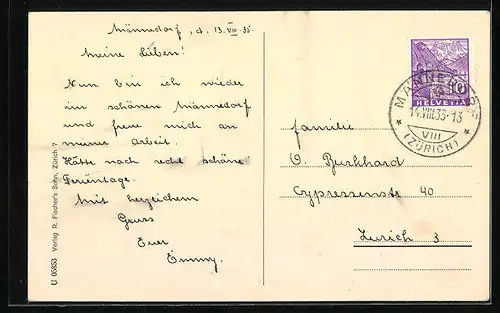 Männedorf, d. 13. VIII. 35.
Meine Lieben!
Nun bin ich wieder
im schönen Männedorf
und freue mich an
meiner Arbeit.
Hatte noch recht schöne
Ferientage.
Mit herzlichem
Gruss
Euer
Emmy.
U 05853 Verlag R. Fischer's Sohn, Zürich 7
10
HELVETIA
MÄNNEDORF
14.VIII.35-13
VIII
(ZÜRICH)
Familie
O. Burkhard
Cypressenstr 40
Zürich 3